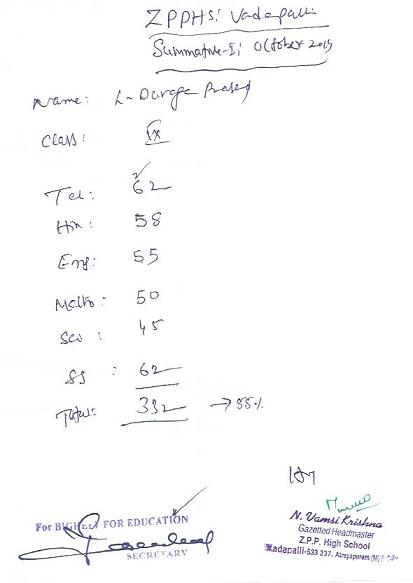 ZPPHS: Vadapalli
Summative-I: October 2015
Name: L. Durga Prasad
Class: IX
Tel: 62
Hin: 58
Eng: 55
Maths: 50
Sci: 45
SS: 62
Total: 332 → 55%
For BIGHELP FOR EDUCATION
SECRETARY
N. Vamsi Krishna
Gazetted Headmaster
Z.P.P. High School
Vadapalli-533 237, Atreyapuram (M)